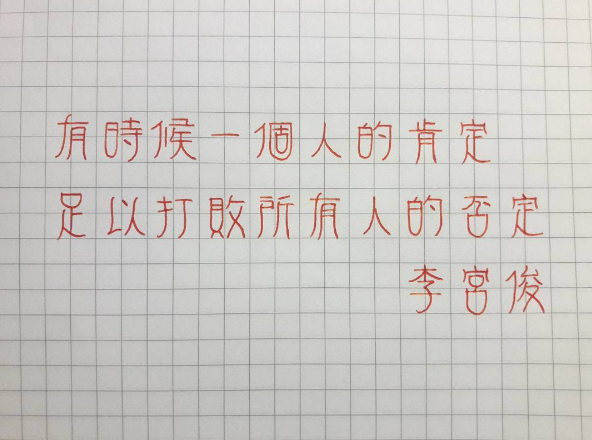 有時候一個人的肯定
足以打敗所有人的否定
李宮俊